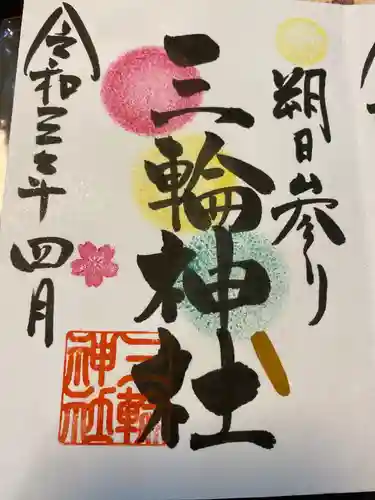 朔日参り
三輪神社
令和三年四月
三輪
神社